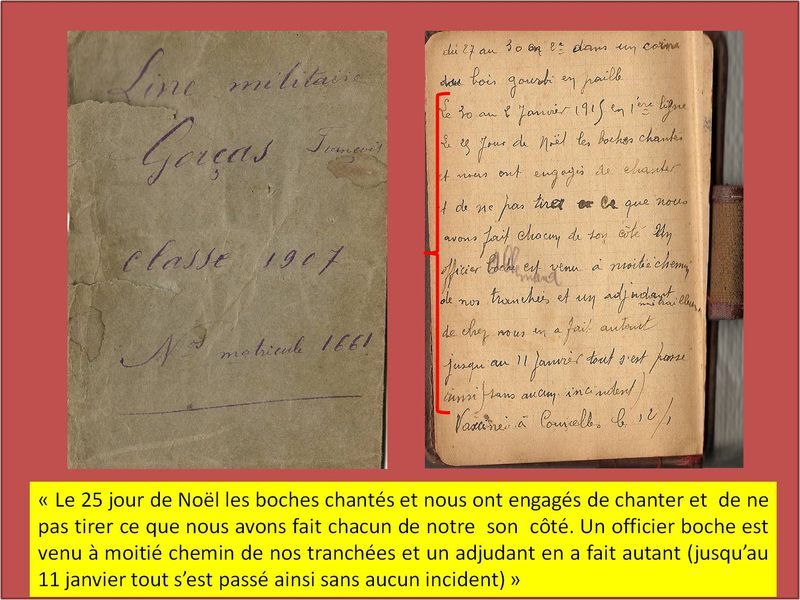 Livre militaire
Gorças François
classe 1907
Nº matricule 1661
du 27 au 30 en 2e dans un
bois gourbi en paille
Le 30 au 2 Janvier 1915 en 1ère ligne
Le 25 Jour de Noël les boches chantés
et nous ont engagés de chanter
et de ne pas tirer ce que nous
avons fait chacun de son côté Un
officier boche allemand est venu à moitié chemin
de nos tranchées et un adjudant mitrailleur
de chez nous en a fait autant
jusqu'au 11 Janvier tout s'est passé
ainsi (sans aucun incindent)
Vacciné à Courcelles le 12/1
« Le 25 jour de Noël les boches chantés et nous ont engagés de chanter et de ne
pas tirer ce que nous avons fait chacun de notre son côté. Un officier boche est
venu à moitié chemin de nos tranchées et un adjudant en a fait autant (jusqu'au
11 janvier tout s'est passé ainsi sans aucun incident) »